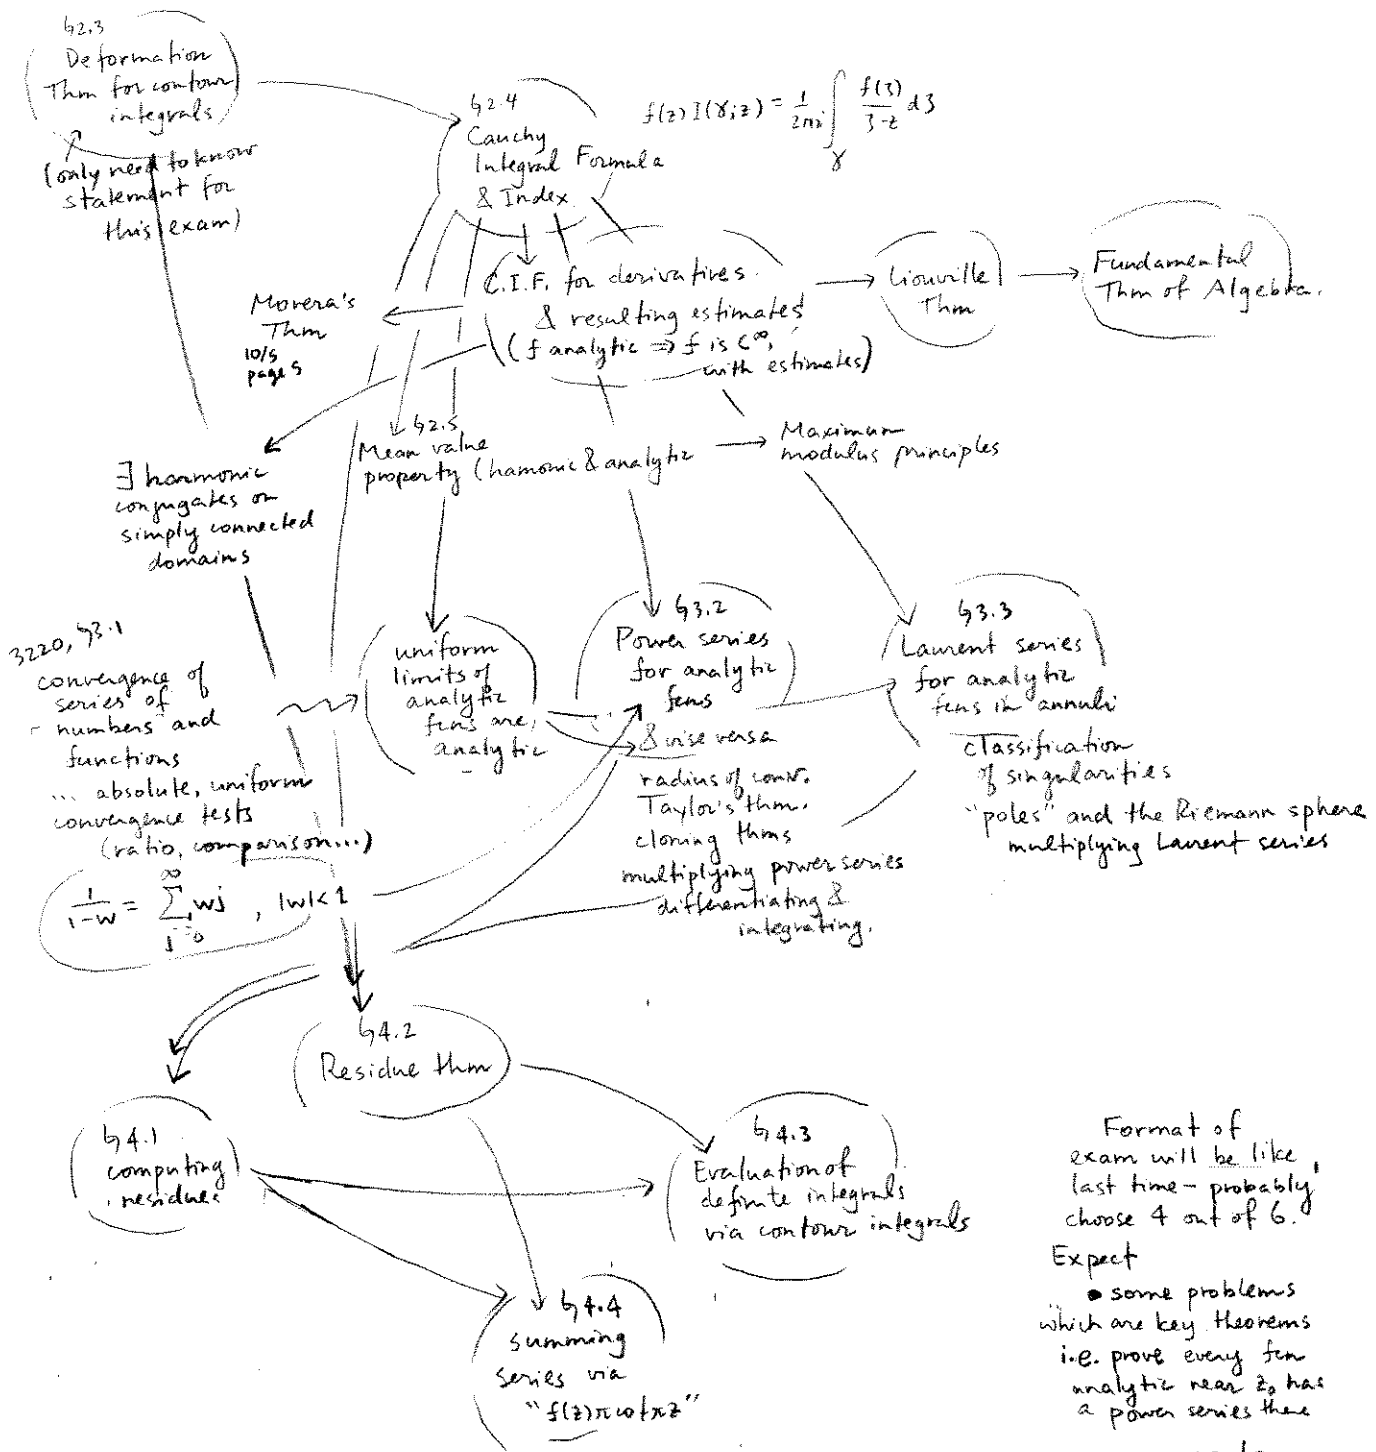 §2.3
Deformation
Thm for contour
integrals
(only need to know
statement for
this exam)
§2.4
Cauchy
Integral Formula
& Index
f(z) I(γ;z) = 1/2πi ∫γ f(ζ)/ζ-z dζ
C.I.F. for derivatives
& resulting estimates
(f analytic ⇒ f is C∞,
with estimates)
Liouville
Thm
Fundamental
Thm of Algebra.
Morera's
Thm
10/5
page 5
§2.5
Mean value
property (hamonic & analytic
Maximum
modulus principles
∃ harmonic
conjugates on
simply connected
domains
3220, §3.1
convergence of
series of
numbers and
functions
... absolute, uniform
convergence tests
(ratio, comparison...)
1/1-w = ∞ Σ j=0 wj , |w|<1
uniform
limits of
analytic
fcns are
analytic
§3.2
Power series
for analytic
fcns
& vise versa
radius of conv.
Taylor's thm.
cloning thms
multiplying power series
differentiating &
integrating.
§3.3
Laurent series
for analytic
fcns in annuli
classification
of singularities
"poles" and the Riemann sphere
multiplying Laurent series
§4.2
Residue thm
§4.1
computing
residues
§4.3
Evaluation of
definite integrals
via contour integrals
§4.4
summing
series via
"f(z)π cot πz"
Format of
exam will be like
last time - probably
choose 4 out of 6.
Expect
• some problems
which are key theorems
i.e. prove every fcn
analytic near z₀ has
a power series there